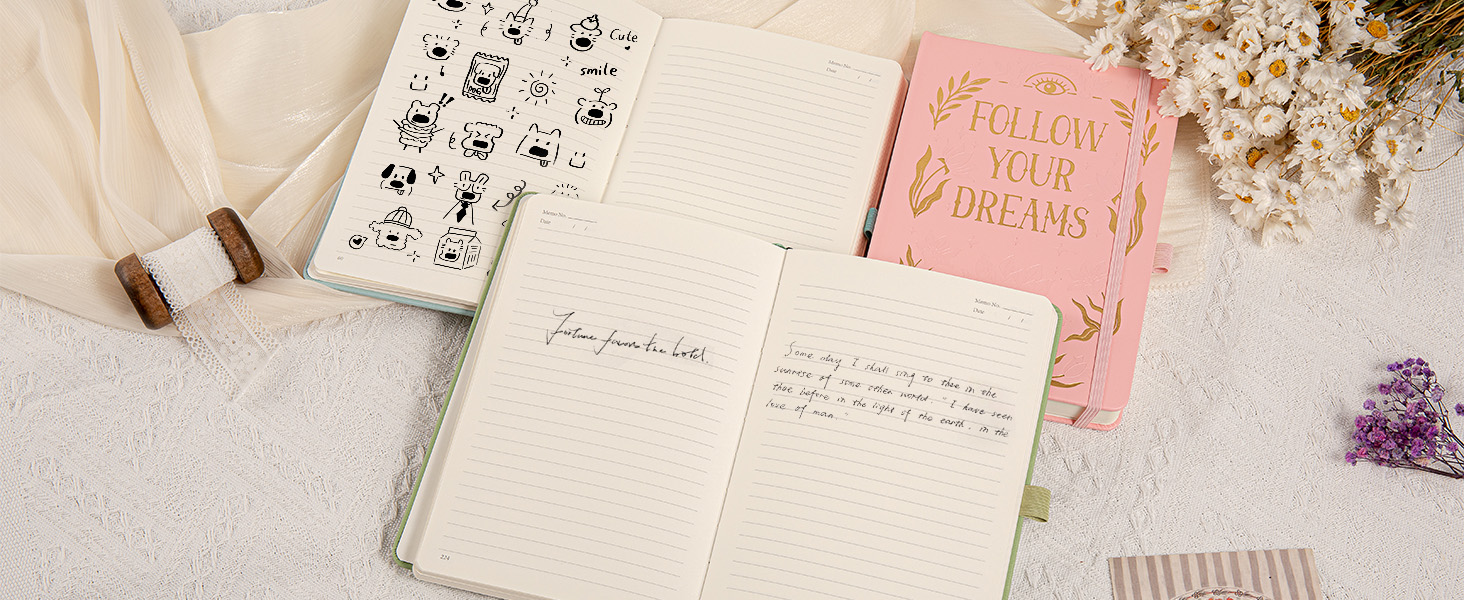 Cute
smile
DOG
60
Memo No.
Date / /
FOLLOW
YOUR
DREAMS
Memo No.
Date / /
Fortune favors the bold.
224
Memo No.
Date / /
Some day I shall sing to thee in the
sunrise of some other world. "I have seen
thee before in the light of the earth, in the
love of man."